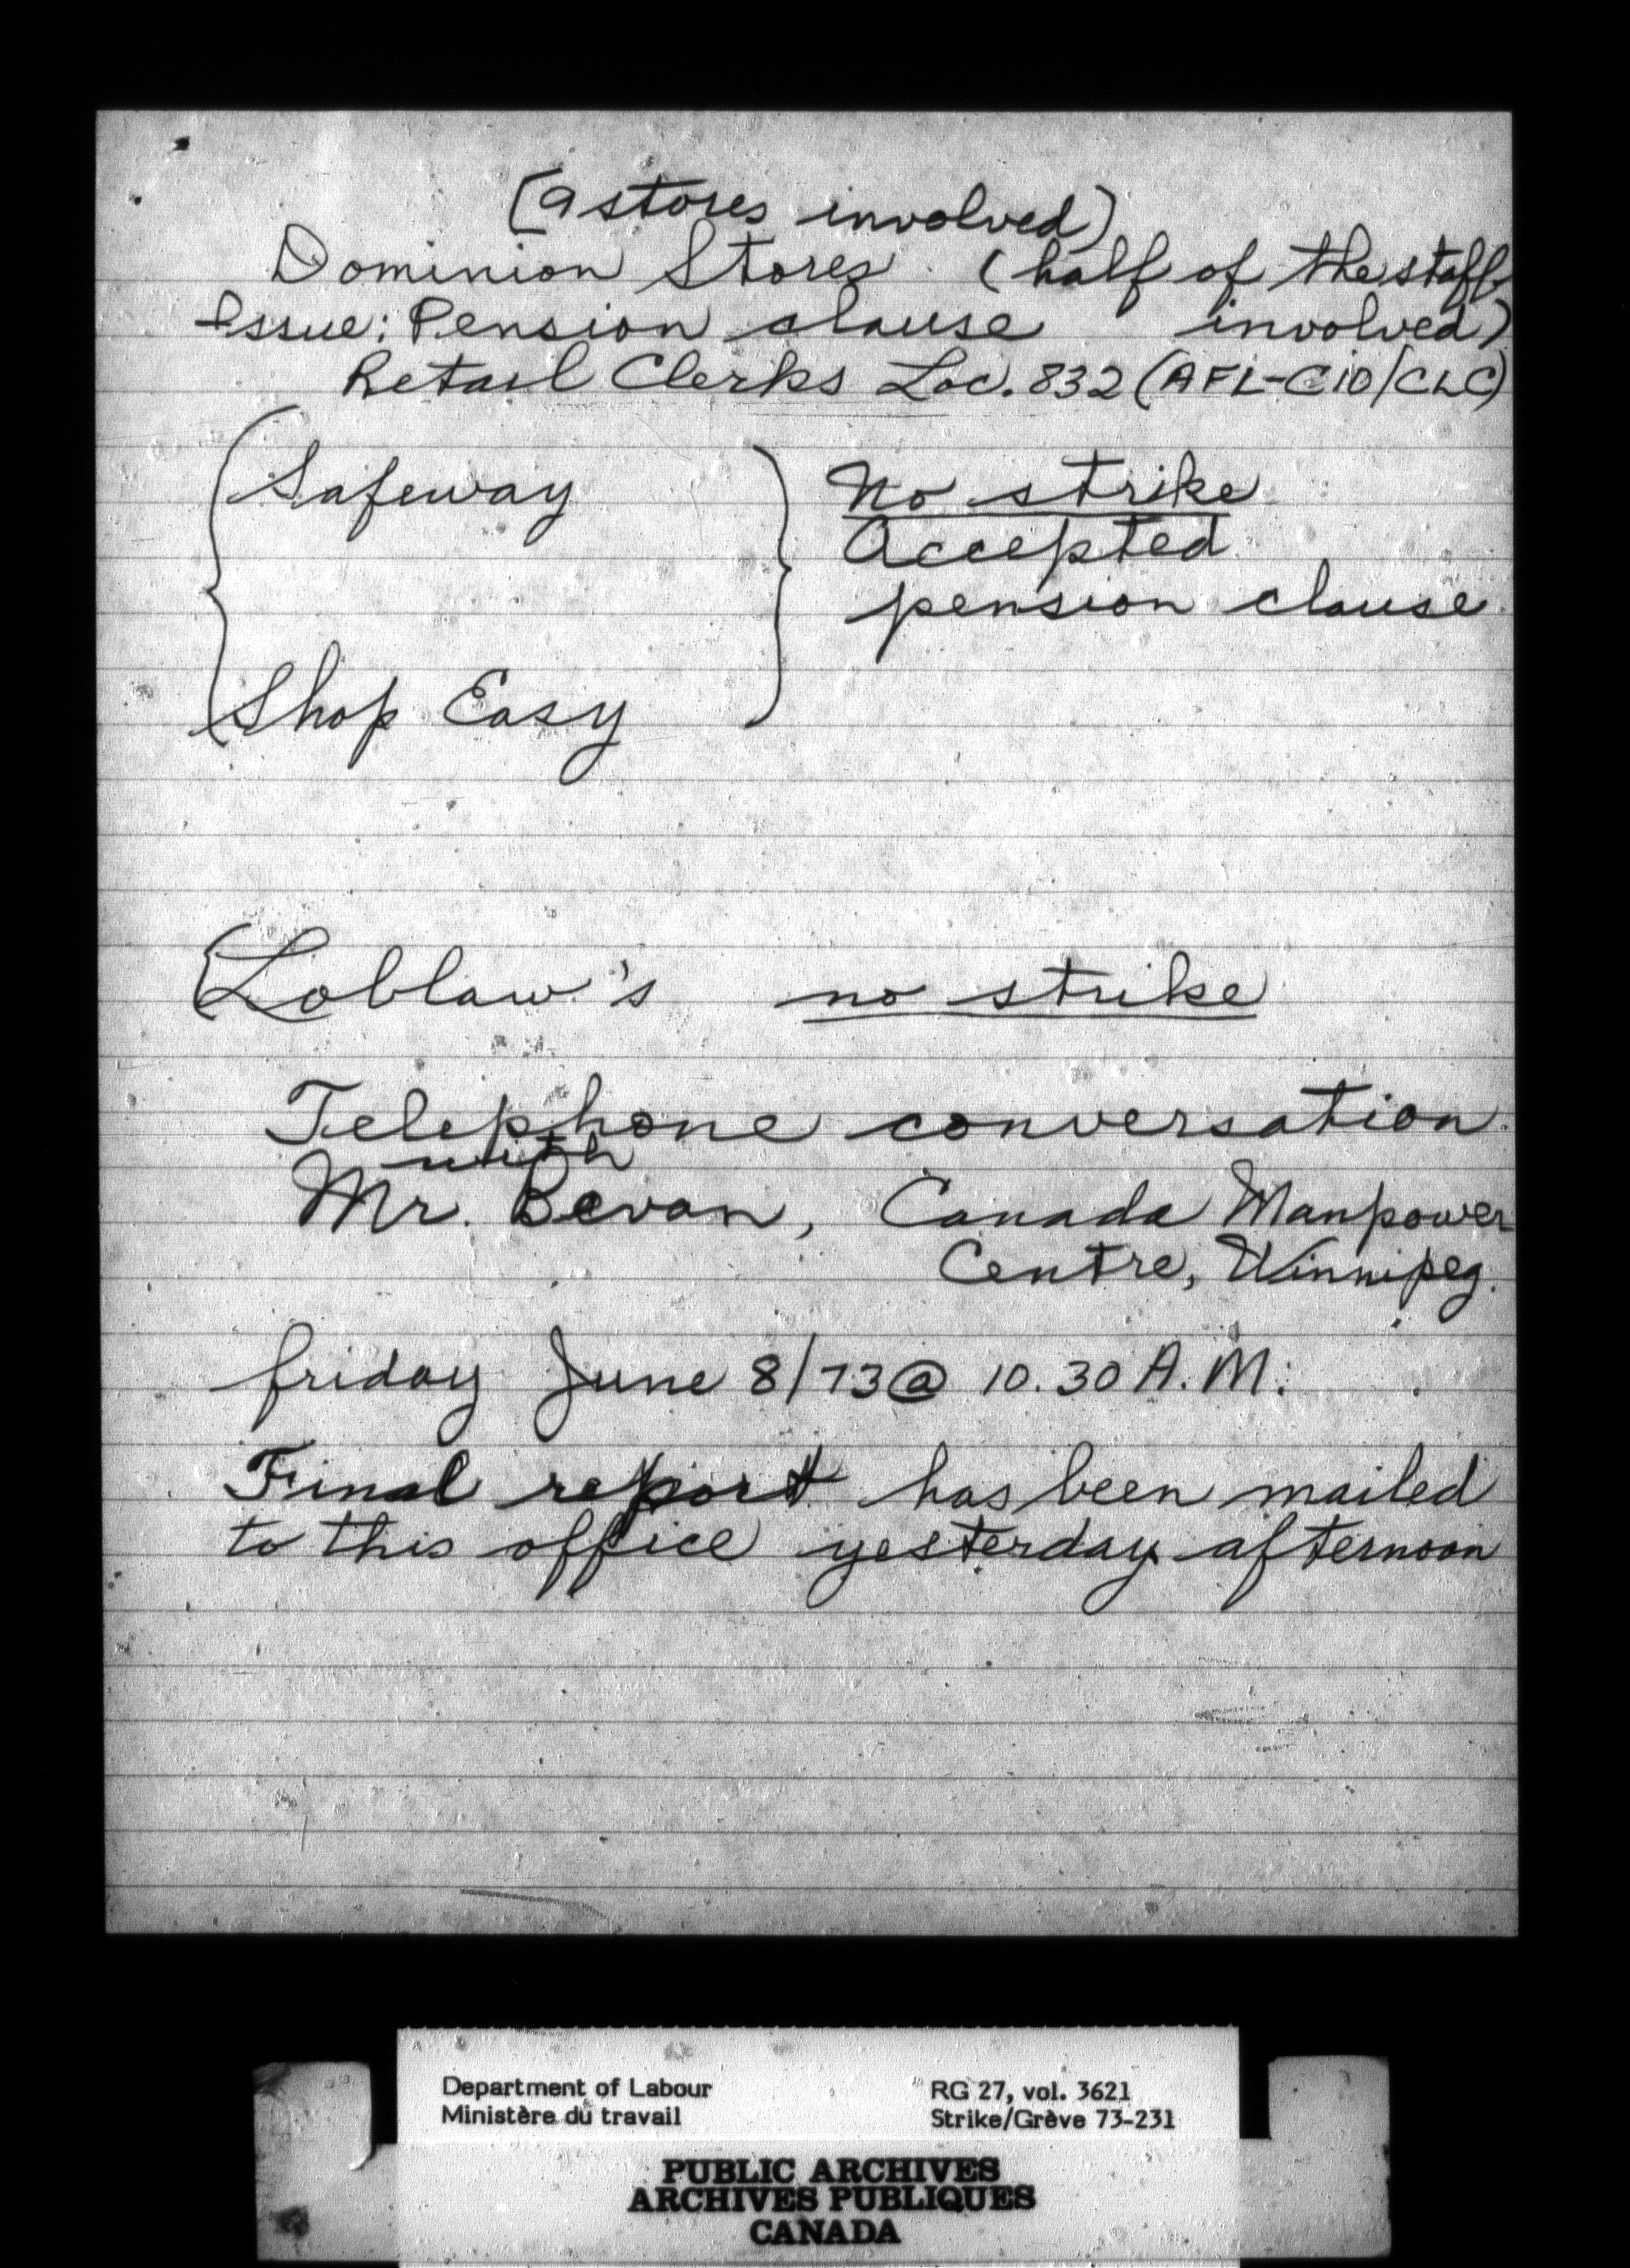 (9 stores involved)
Dominion Stores (half of the staff
Issue: Pension clause involved)
Retail Clerks Loc. 832 (AFL-CIO/CLC)
Safeway No strike
Accepted
pension clause
Shop Easy
Loblaw's no strike
Telephone conversation
with
Mr. Bevan, Canada Manpower
Centre, Winnipeg.
friday June 8/73 @ 10.30 A.M.
Final report has been mailed
to this office yesterday afternoon
Department of Labour RG 27, vol. 3621
Ministère du travail Strike/Grève 73-231
PUBLIC ARCHIVES
ARCHIVES PUBLIQUES
CANADA